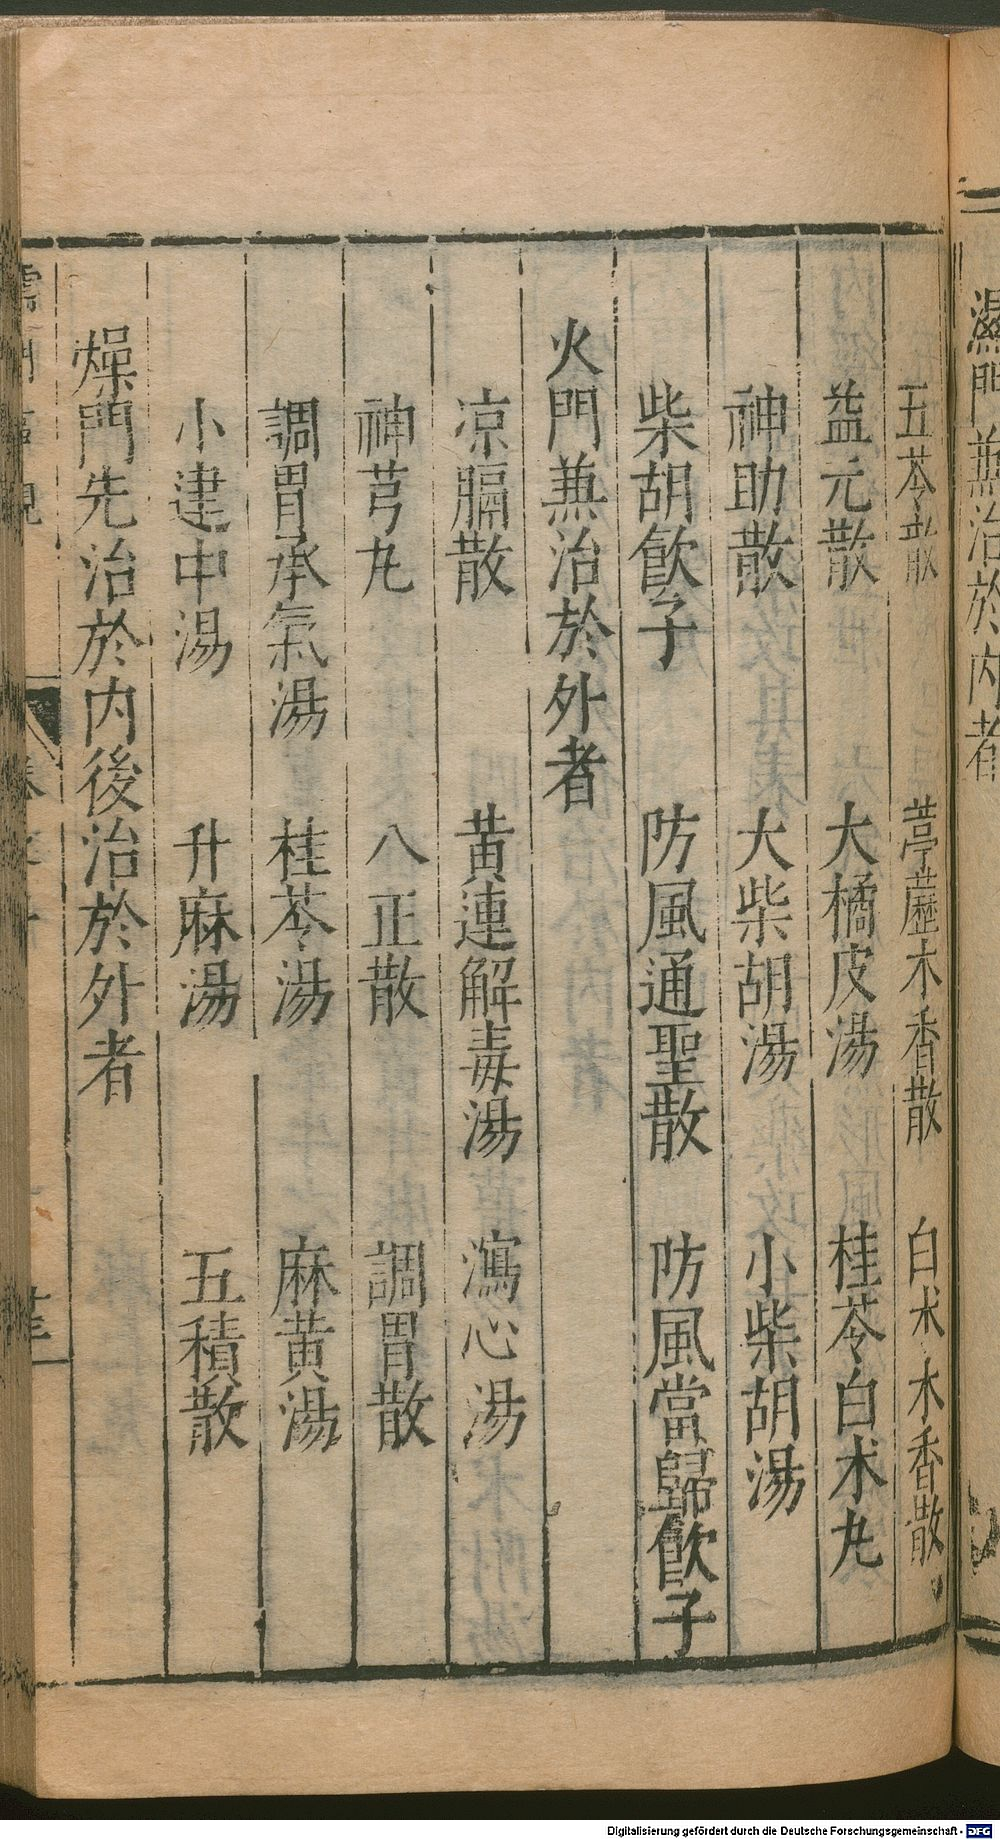 濕門兼治於内者
五苓散　葶藶木香散　白术木香散
益元散　大橘皮湯　桂苓白术丸
神助散　大柴胡湯　小柴胡湯
柴胡飲子　防風通聖散　防風當歸飲子
火門兼治於外者
凉膈散　黄連解毒湯　瀉心湯
神芎丸　八正散　調胃散
調胃承氣湯　桂苓湯　麻黄湯
小建中湯　升麻湯　五積散
燥門先治於内後治於外者
Digitalisierung gefördert durch die Deutsche Forschungsgemeinschaft - DFG